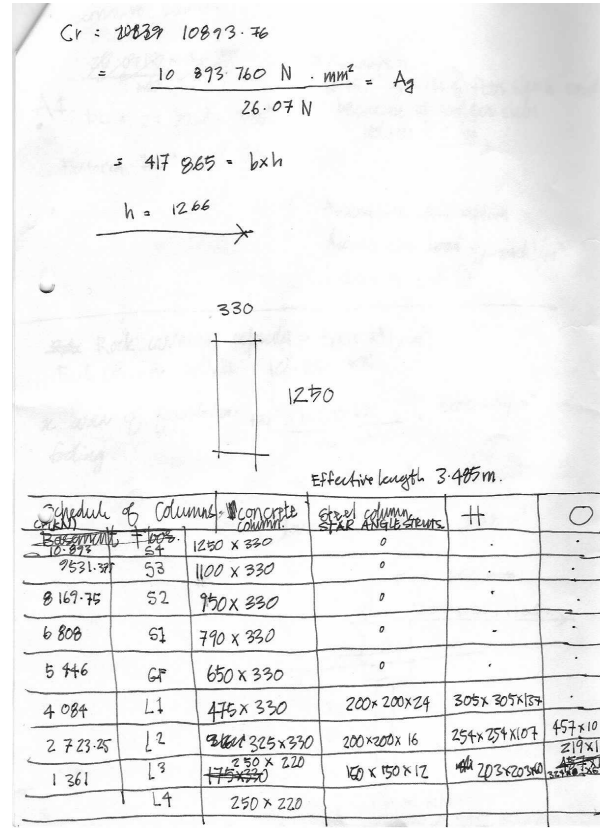 Cr = 10893.76
= 10 893 760 N . mm² = Ag
26.07 N
= 417 865 = b×h
h = 1266
330
1250
Effective length 3.485m.
Schedule of Columns. concrete column. steel column STAR ANGLE STRUTS. H O
Basement
10.893 S4 1250 × 330 0 . .
9531.375 S3 1100 × 330 0 . .
8 169.75 S2 950 × 330 0 . .
6 808 S1 790 × 330 0 - .
5 446 GF 650 × 330 0 . .
4 084 L1 475 × 330 200 × 200 × 24 305 × 305 × 137 .
2 723.25 L2 325 × 330 200×200 × 16 254 × 254 × 107 457 × 10
219×1
1 361 L3 250 × 220 150 × 150 × 12 203×203×60
175×330
L4 250 × 220